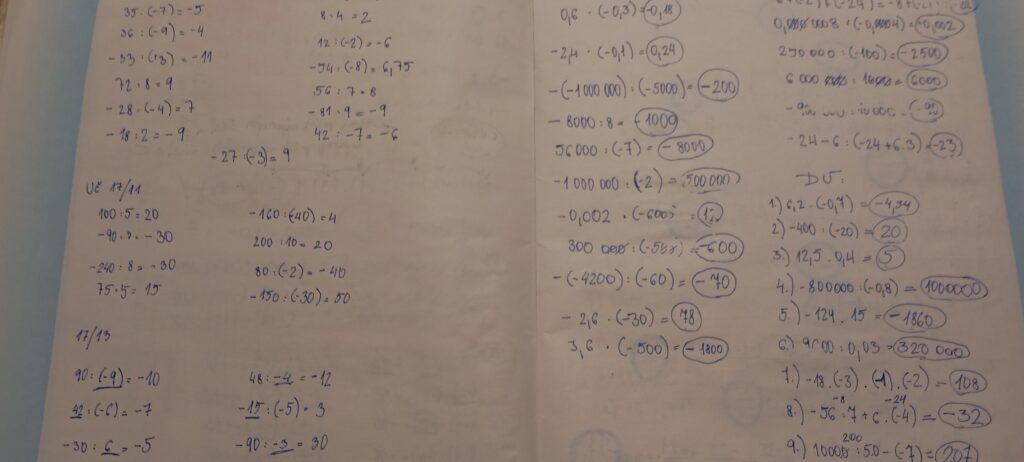 35 : (-7) = -5
36 : (-9) = -4
-33 : (+3) = -11
72 : 8 = 9
-28 : (-4) = 7
-18 : 2 = -9
8 · 4 = 2
12 : (-2) = -6
-54 : (-8) = 6,75
56 : 7 = 8
-81 : 9 = -9
42 : -7 = -6
-27 : (-3) = 9
Uč 17/11
100 : 5 = 20
-90 : 3 = -30
-240 : 8 = -30
75 : 5 = 15
-160 : (-40) = 4
200 : 10 = 20
80 : (-2) = -40
-150 : (-30) = 50
17/13
90 : (-9) = -10
42 : (-6) = -7
-30 : 6 = -5
48 : -4 = -12
-15 : (-5) = 3
-90 : -3 = 30
0,6 · (-0,3) = -0,18
-2,4 · (-0,1) = 0,24
-(-1000 000) : (-5000) = -200
-8000 : 8 = -1000
56000 : (-7) = -8000
-1 000 000 : (-2) = 500 000
-0,002 · (-600) =
300 000 : (-500) = -600
-(-4200) : (-60) = -70
-2,6 · (-30) = 78
3,6 · (-500) = -1800
= -0,002
250 000 : (-100) = -2500
= 6000
-24 - 6 : (-24 + 6.3) = -23
DÚ:
1.) 6,2 . (-0,7) = -4,34
2.) -400 : (-20) = 20
3.) 12,5 . 0,4 = 5
4.) -800000 : (-0,8) = 1000000
5.) -124 . 15 = -1860
6.) : 0,03 = 320 000
7.) -18 . (-3) . (-1) . (-2) = 108
-8 -24
8.) -56 : 7 + 6 . (-4) = -32
200
9.) 10000 : 50 - (-7) = 207